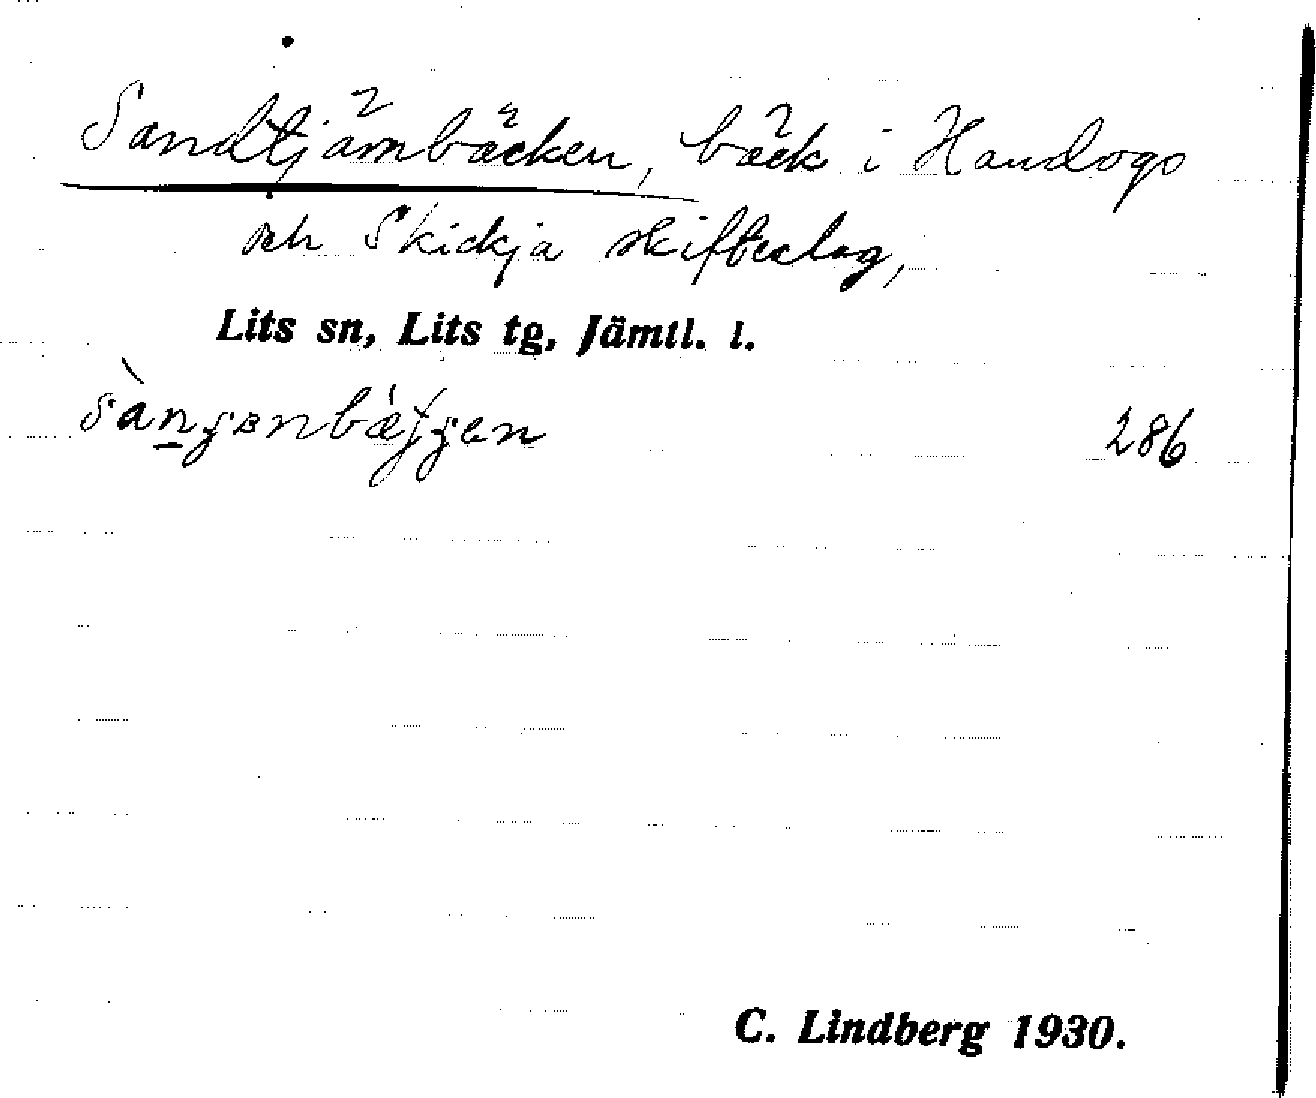 Sandtjämbäcken, bäck i Handogs
och Skickja skifteslag,
Lits sn, Lits tg, Jämtl. l.
286
C. Lindberg 1930.